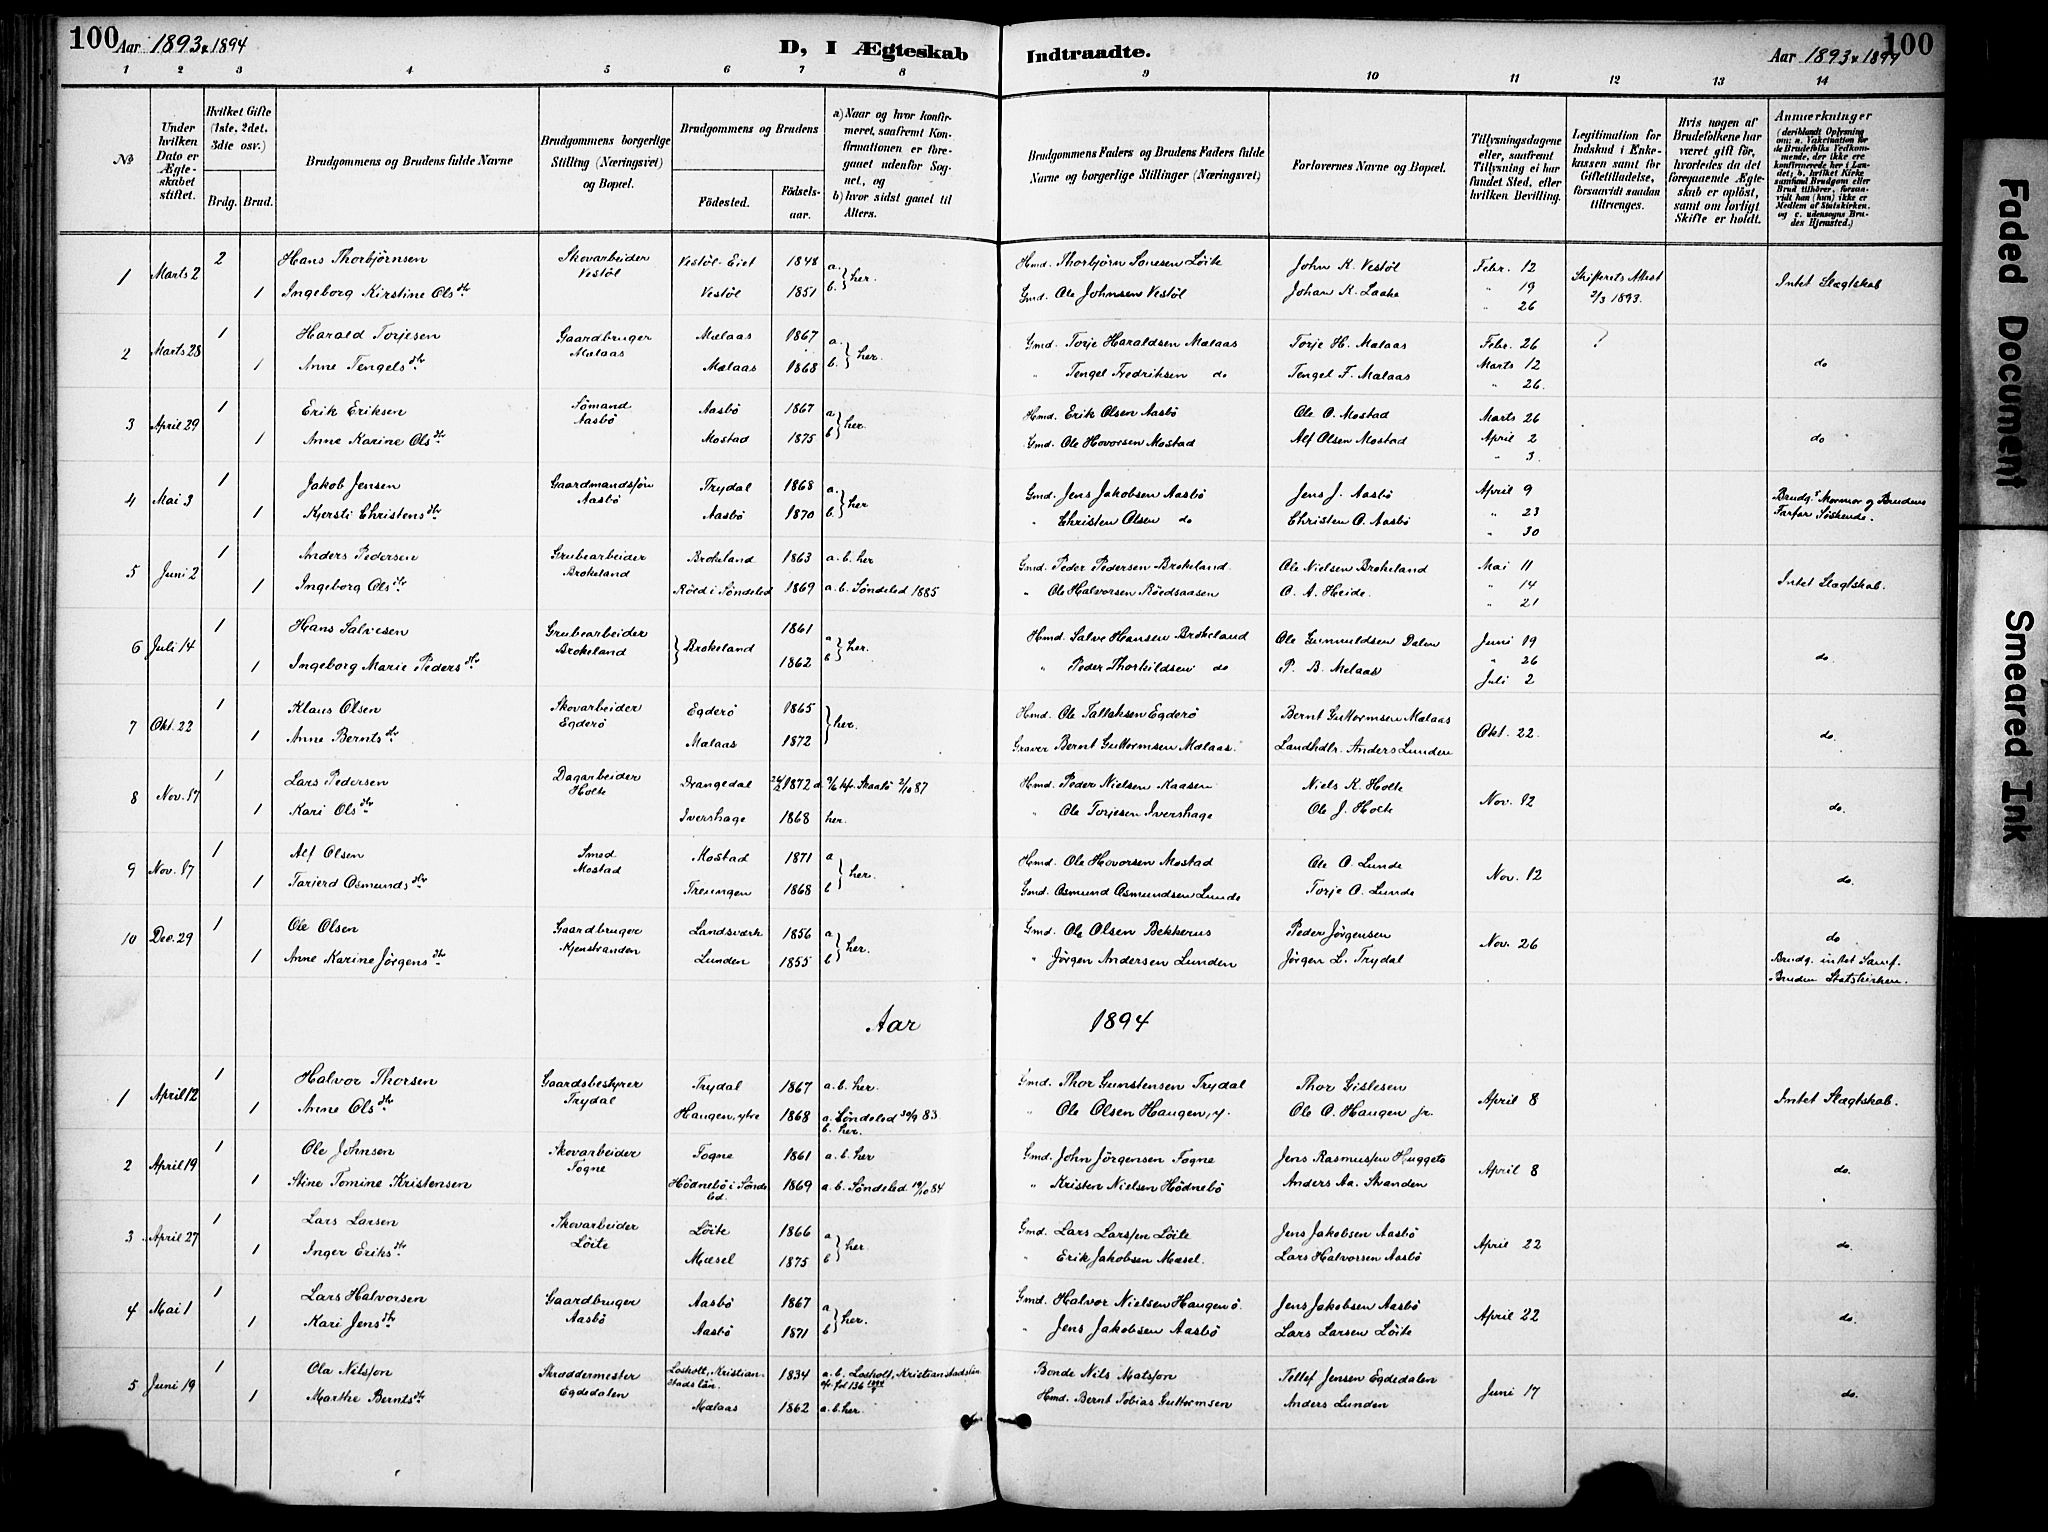 100 Aar 1893 & 1894
D, I Ægteskab Indtraadte.
Aar 1893 & 1894 100
1 2 3 4 5 6 7 8 9 10 11 12 13 14
No
Under hvilken Dato er Ægteskabet stiftet.
Hvilket Gifte (1ste, 2det, 3die osv.)
Brdg. Brud.
Brudgommens og Brudens fulde Navne
Brudgommens borgerlige Stilling (Næringsvei) og Bopæl.
Brudgommens og Brudens
Fødested. Fødselsaar.
a) Naar og hvor konfirmeret, saafremt Konfirmationen er foregaaet udenfor Sognet, og
b) hvor sidst gaaet til Alters.
Brudgommens Faders og Brudens Faders fulde Navne og borgerlige Stillinger (Næringsvei)
Forlovernes Navne og Bopæl.
Tillysningsdagene eller, saafremt Tillysning ei har fundet Sted, efter hvilken Bevilling.
Legitimation for Indskud i Enkekassen samt for Giftetilladelse, forsaavidt saadan tiltrænges.
Hvis nogen af Brudefolkene har været gift før, hvorledes da det foregaaende Ægteskab er opløst, samt om lovligt Skifte er holdt.
Anmærkninger
(deriblandt Oplysning om: a. Vakcination for de Brudefolks Vedkommende, der ikke ere konfirmerede her i Landet; b. hvilket Kirkesamfund Brudgom eller Brud tilhører, forsaavidt han (hun) ikke er Medlem af Statskirken, og c. udensogns Brudes Hjemsted.)
1 Marts 2 2 Hans Thorbjørnsen Skovarbeider Vestøl Vestøl-Eiet 1848 a. b. } her. Hmd. Thorbjørn Sonesen Løite John K. Vestøl Febr. 12 Skifterets Attest 2/3 1893. Intet Slægtskab
1 Ingeborg Kirstine Olsdtr Vestøl 1851 Gmd. Ole Johnsen Vestøl Johan K. Laake " 19
" 26
2 Marts 28 1 Harald Torjesen Gaardbruger Mælaas Mælaas 1867 a. b. } her. Gmd. Torje Haraldsen Mælaas Torje H. Mælaas Febr. 26 ? do
1 Anne Tengelsdtr Mælaas 1868 " Tengel Fredriksen do Tengel F. Mælaas Marts 12
" 26.
3 April 29 1 Erik Eriksen Sømand Aasbø Aasbø 1867 a b } her. Hmd. Erik Olsen Aasbø Ole O. Mostad Marts 26 do
1 Anne Karine Olsdtr Mostad 1875 Gmd. Ole Hovorsen Mostad Alf Olsen Mostad April 2
" 3.
4 Mai 3 1 Jakob Jensen Gaardmandssøn Aasbø Trydal 1868 a. b. } her Gmd. Jens Jakobsen Aasbø Jens J. Aasbø April 9 Brudg.s Mormor og Brudens Farfar Søskende.
1 Kjersti Christensdtr Aasbø 1870 " Christen Olsen do Christen O. Aasbø " 23
" 30
5 Juni 2 1 Anders Pedersen Grubearbeider Brokeland Brokeland 1863 a. b. her Gmd. Peder Pedersen Brokeland. Ole Nielsen Brokeland Mai 11 Intet Slægtskab.
1 Ingeborg Olsdtr Røed i Søndeled 1869 a. b. Søndeled 1885 " Ole Halvorsen Røedsaasen O. A. Heide. " 14
" 21
6 Juli 14 1 Hans Salvesen Grubearbeider Brokeland } Brokeland 1861 a b } her. Hmd. Salve Hansen Brokeland Ole Gunnuldsen Dalen Juni 19 do.
1 Ingeborg Marie Pedersdtr 1862 " Peder Thorkildsen do P. B. Mælaas " 26
Juli 2
7 Okt. 22 1 Klaus Olsen Skovarbeider Egderø Egderø 1865 } her. Hmd. Ole Tallaksen Egderø Bernt Guttormsen Mælaas Okt. 22. do.
1 Anne Berntsdtr Mælaas 1872 Graver Bernt Guttormsen Mælaas. Landhdlr. Anders Lunden
8 Nov. 17 1 Lars Pedersen Dagarbeider Holte Drangedal 1872 kf. Skaatø 2/10 87 Hmd. Peder Nielsen Kaasen Niels K. Holte Nov. 12 do.
1 Kari Olsdtr Ivershage 1868 her. " Ole Torjesen Ivershage Ole J. Holte
9 Nov. 17 1 Alf Olsen Smed Mostad Mostad 1871 a b } her. Hmd. Ole Hovorsen Mostad Ole O. Lunde Nov. 12 do.
1 Tarjerd Osmundsdtr Treungen 1868 Gmd. Osmund Osmundsen Lunde Torje O. Lunde
10 Dec. 29 1 Ole Olsen Gaardbruger Kjenstranden Landsværk 1856 a b } her. Gmd. Ole Olsen Bekkerus Peder Jørgensen Nov. 26 do
1 Anne Karine Jørgensdtr Lunden 1855 " Jørgen Andersen Lunden Jørgen L. Trydal Brudg. intet Samf.
Bruden Statskirken.
Aar 1894
1 April 12 1 Halvor Thorsen Gaardsbestyrer Trydal Trydal 1867 a. b. her. Gmd. Thor Gunstensen Trydal Thor Gislesen April 8 Intet Slægtskab.
1 Anne Olsdtr Haugen, ytre 1868 a. Søndeled 30/9 83. b. her. " Ole Olsen Haugen, y. Ole O. Haugen jr.
2 April 19 1 Ole Johnsen Skovarbeider Fogne Fogne 1861 a. b. her Gmd. John Jørgensen Fogne Jens Rasmussen Huggets April 8 do.
1 Stine Tomine Kristensen Hødnebø i Søndeled. 1869 a. b. Søndeled 19/10 84 " Kristen Nielsen Hødnebø Anders Aa. Stranden
3 April 27 1 Lars Larsen Skovarbeider Løite Løite 1866 a b } her Gmd. Lars Larssen Løite Jens Jakobsen Aasbø April 22 do.
1 Inger Eriksdtr Mæsel 1875 " Erik Jakobsen Mæsel. Lars Halvorsen Aasbø
4 Mai 1 1 Lars Halvorsen Gaardbruger Aasbø Aasbø 1867 a b } her. Gmd. Halvor Nielsen Haugen ø. Jens Jakobsen Aasbø April 22 do.
1 Kari Jensdtr Aasbø 1871 " Jens Jakobsen Aasbø Lars Larsen Løite
5 Juni 19 1 Ola Nilsson Skræddermester Egdedalen Losholt, Kristianstadslän 1834 a. b. Loshult, Kristianstadslän Bonde Nils Matsson Tellef Jensen Egdedalen Juni 17 do.
1 Marthe Berntsdtr Mælaas 1862 a. b. her Hmd. Bernt Tobias Guttormsen Anders Lunden
Faded Document
Smeared Ink